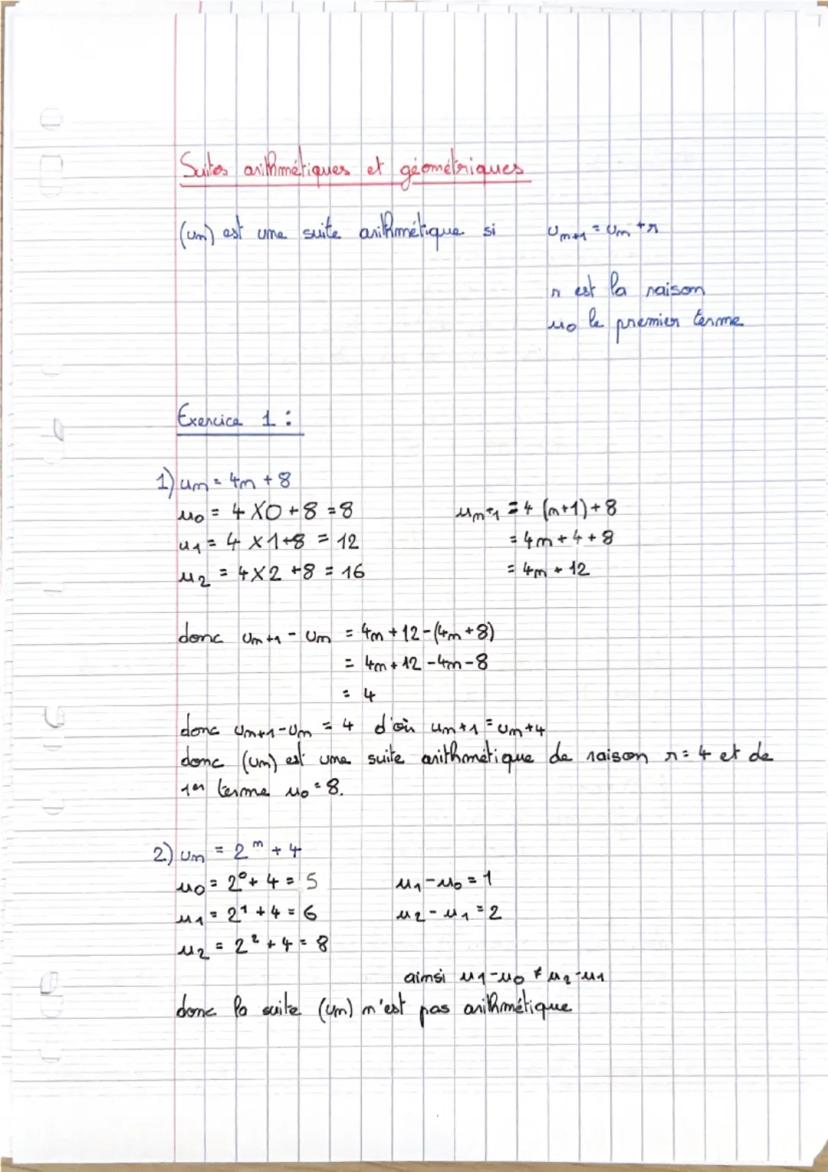 Suites arithmétiques et géométriques
(un) est une suite arithmétique si un+1 = un + r
r est la raison
u0 le premier terme
Exercice 1 :
1) un = 4n + 8
u0 = 4 × 0 + 8 = 8
un+1 = 4 (n+1) + 8
u1 = 4 × 1 + 8 = 12
= 4n + 4 + 8
u2 = 4 × 2 + 8 = 16
= 4n + 12
donc un+1 - un = 4n + 12 - (4n + 8)
= 4n + 12 - 4n - 8
= 4
donc un+1 - un = 4 d'où un+1 = un + 4
donc (un) est une suite arithmétique de raison r = 4 et de
1er terme u0 = 8.
2) un = 2ⁿ + 4
u0 = 2⁰ + 4 = 5
u1 - u0 = 1
u1 = 2¹ + 4 = 6
u2 - u1 = 2
u2 = 2² + 4 = 8
ainsi u1 - u0 ≠ u2 - u1
donc la suite (un) n'est pas arithmétique